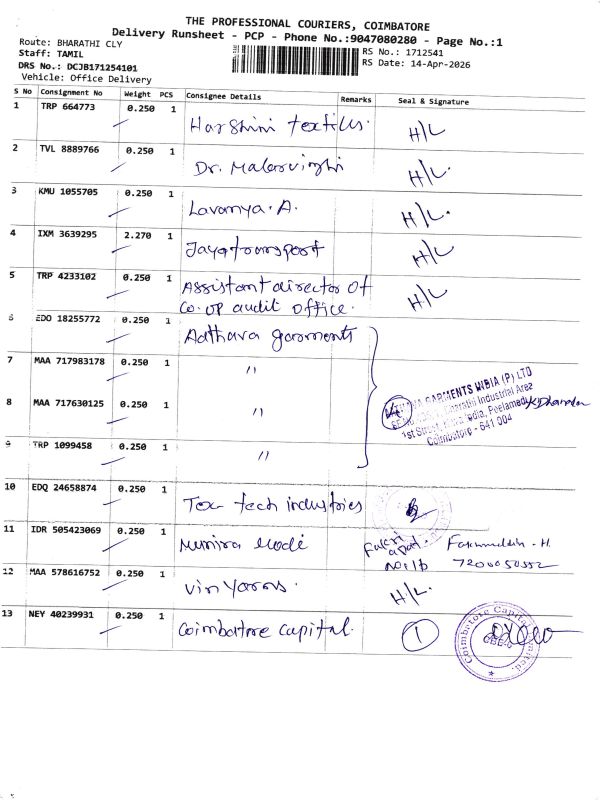 THE PROFESSIONAL COURIERS, COIMBATORE
Delivery Runsheet - PCP - Phone No.:9047080280 - Page No.:1
Route: BHARATHI CLY
Staff: TAMIL
RS No.: 1712541
DRS No.: DCJB171254101
RS Date: 14-Apr-2026
Vehicle: Office Delivery
S No Consignment No Weight PCS Consignee Details Remarks Seal & Signature
1 TRP 664773 0.250 1 Harshini textiles. H/L
2 TVL 8889766 0.250 1 Dr. H/L.
3 KMU 1055705 0.250 1 Lavanya. A. H/L.
4 IXM 3639295 2.270 1 Jayatransport H/L
5 TRP 4233102 0.250 1 Assistant director of H/L
Co. op audit office.
6 EDO 18255772 0.250 1 Aathava garments
7 MAA 717983178 0.250 1 "
8 MAA 717630125 0.250 1 "
GARMENTS (P) LTD
Bharathi Industrial Area
1st Street, Peelamedu
Coimbatore - 641 004
9 TRP 1099458 0.250 1 "
10 EDQ 24658874 0.250 1 Tex tech industries
11 IDR 505423069 0.250 1 Munira Modi Fakri apat. No 1b Fakruddin - H.
12 MAA 578616752 0.250 1 Vin Yarns. H/L.
13 NEY 40239931 0.250 1 Coimbatore capital. 1
Coimbatore Capital Limited.
CBE-